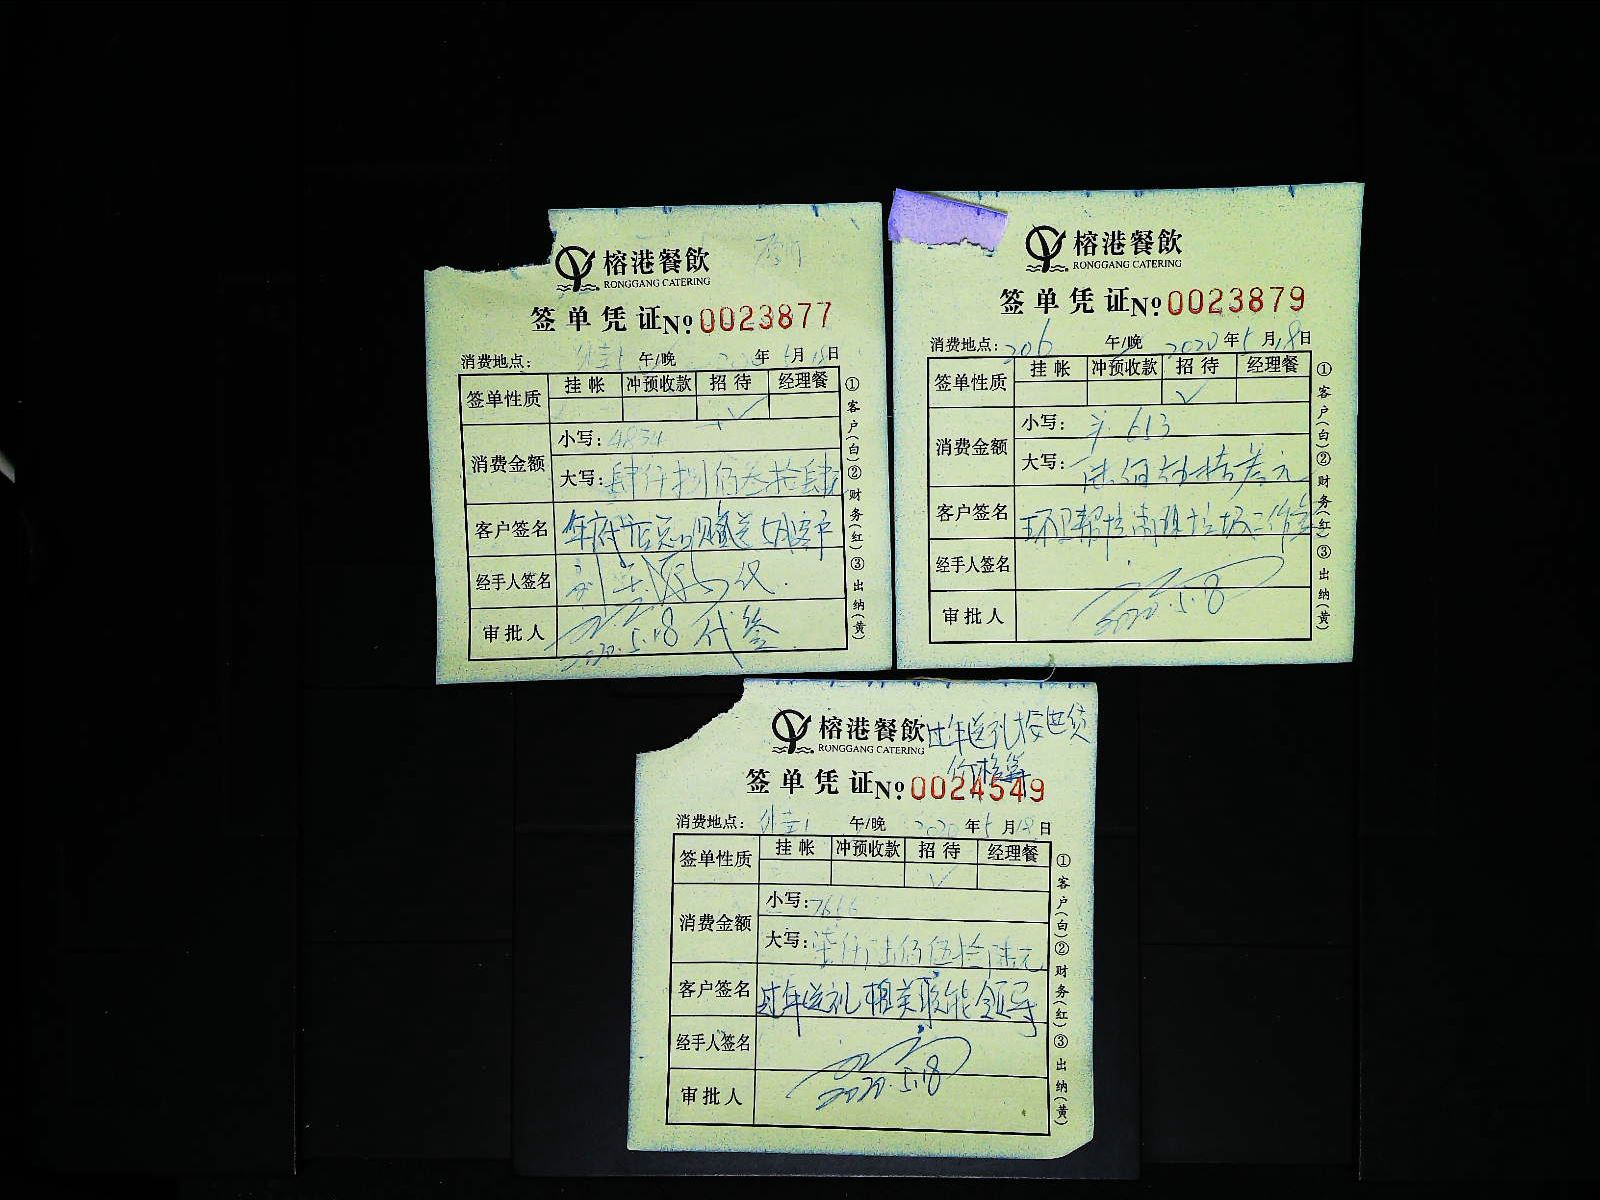 榕港餐飲
RONGGANG CATERING
签单凭证 No 0023877
消费地点： 外卖 午/晚 2020年5月18日
签单性质 挂帐 冲预收款 招待 经理餐
✓
消费金额 小写：4834
大写：肆仟捌佰叁拾肆元
客户签名
经手人签名
审批人 2020.5.18 代签
①客户(白)②财务(红)③出纳(黄)
榕港餐飲
RONGGANG CATERING
签单凭证 No 0023879
消费地点：206 午/晚 2020年5月18日
签单性质 挂帐 冲预收款 招待 经理餐
✓
消费金额 小写：¥613
大写：陆佰 拾叁元
客户签名
经手人签名
审批人 2020.5.18
①客户(白)②财务(红)③出纳(黄)
榕港餐飲 过年送礼按进货
RONGGANG CATERING
价格算
签单凭证 No 0024549
消费地点： 外卖 午/晚 2020年5月18日
签单性质 挂帐 冲预收款 招待 经理餐
✓
消费金额 小写：
大写：柒仟陆佰伍拾陆元
客户签名 过年送礼相关职能领导
经手人签名
审批人 2020.5.18
①客户(白)②财务(红)③出纳(黄)